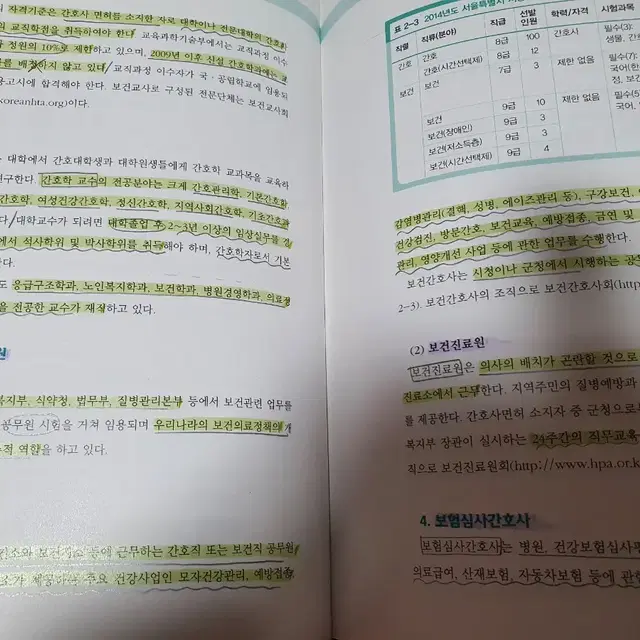 자격기준은 간호사 면허를 소지한 자로 대학이나 전문대학의 간호과
교직학점을 취득하여야 한다. 교육과학기술부에서는 교직과정 이수
정원의 10%로 제한하고 있으며, 2009년 이후 신설 간호학과에는 교
를 배정하지 않고 있다. 교직과정 이수자가 국·공립학교에 임용되
용고시에 합격해야 한다. 보건교사로 구성된 전문단체는 보건교사회
koreanhta.org)이다.
대학에서 간호대학생과 대학원생들에게 간호학 교과목을 교육하
연구한다. 간호학 교수의 전공분야는 크게 간호관리학, 기본간호학
간호학, 여성건강간호학, 정신간호학, 지역사회간호학, 기초간호과
다. 대학교수가 되려면 대학졸업 후 2~3년 이상의 임상실무를 쌓
에서 석사학위 및 박사학위를 취득해야 하며, 간호학자로서 기본
한다.
도 응급구조학과, 노인복지학과, 보건학과, 병원경영학과, 의료경
을 전공한 교수가 재직하고 있다.
원
복지부, 식약청, 법무부, 질병관리본부 등에서 보건관련 업무를
공무원 시험을 거쳐 임용되며 우리나라의 보건의료정책의 개
적 역할을 하고 있다.
등에 근무하는 간호직 또는 보건직 공무원
가 제공하는 주요 건강사업인 모자건강관리, 예방접종
표 2-3 2014년도 서울특별시
직렬 직류(분야) 직급 선발인원 학력/자격 시험과목
간호 간호 8급 100 간호사 필수(3):
간호(시간선택제) 8급 12 생물, 간호
보건 보건 7급 3 제한 없음 필수(7):
국어(한
정, 보건
보건 9급 10 제한 없음 필수(5)
보건(장애인) 9급 3 국어,
보건(저소득층) 9급 3
보건(시간선택제) 9급 4
감염병관리(결핵, 성병, 에이즈관리 등), 구강보건,
건강검진, 방문간호, 보건교육, 예방접종, 금연 및
관리, 영양개선 사업 등에 관한 업무를 수행한다.
보건간호사는 시청이나 군청에서 시행하는 공무
2-3). 보건간호사의 조직으로 보건간호사회(http
(2) 보건진료원
보건진료원은 의사의 배치가 곤란할 것으로
진료소에서 근무한다. 지역주민의 질병예방과
를 제공한다. 간호사면허 소지자 중 군청으로부
복지부 장관이 실시하는 24주간의 직무교육
직으로 보건진료원회(http://www.hpa.or.k
4. 보험심사간호사
보험심사간호사는 병원, 건강보험심사평
의료급여, 산재보험, 자동차보험 등에 관한